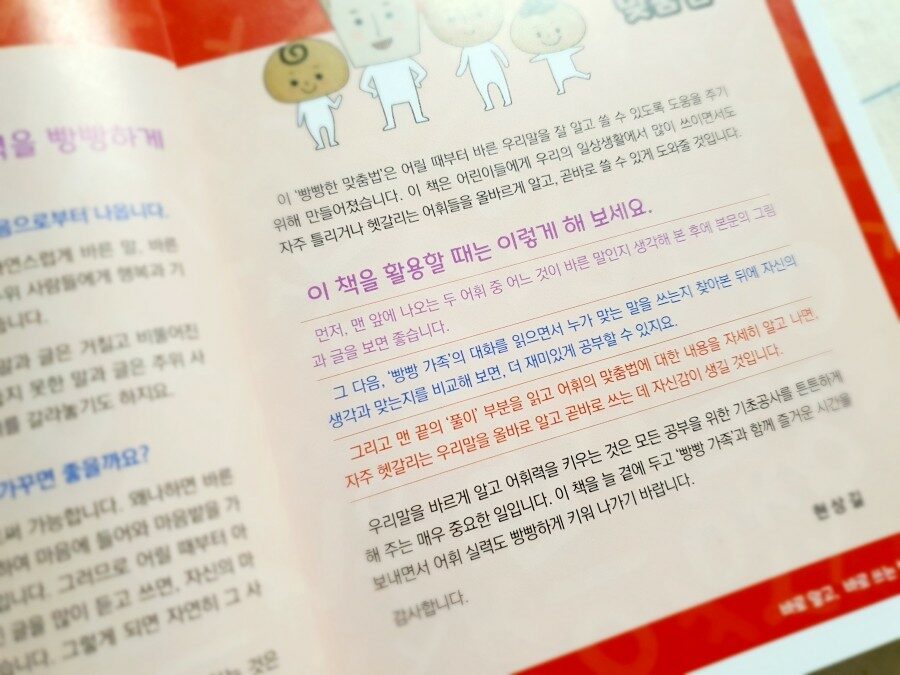 빵빵하게
음으로부터 나옵니다.
바른 말, 바른
사람들에게 행복과 기
습니다.
말과 글은 거칠고 비뚤어진
못한 말과 글은 주위 사
갈라놓기도 하지요.
가꾸면 좋을까요?
가능합니다. 왜냐하면 바른
하여 마음에 들어와 마음밭을 가
입니다. 그러므로 어릴 때부터 아
글을 많이 듣고 쓰면, 자신의 마
습니다. 그렇게 되면 자연히 그 사
것은
맞춤법
이 '빵빵한 맞춤법'은 어릴 때부터 바른 우리말을 잘 알고 쓸 수 있도록 도움을 주기
위해 만들어졌습니다. 이 책은 어린이들에게 우리의 일상생활에서 많이 쓰이면서도
자주 틀리거나 헷갈리는 어휘들을 올바르게 알고, 곧바로 쓸 수 있게 도와줄 것입니다.
이 책을 활용할 때는 이렇게 해 보세요.
먼저, 맨 앞에 나오는 두 어휘 중 어느 것이 바른 말인지 생각해 본 후에 본문의 그림
과 글을 보면 좋습니다.
그 다음, '빵빵 가족'의 대화를 읽으면서 누가 맞는 말을 쓰는지 찾아본 뒤에 자신의
생각과 맞는지를 비교해 보면, 더 재미있게 공부할 수 있지요.
그리고 맨 끝의 '풀이' 부분을 읽고 어휘의 맞춤법에 대한 내용을 자세히 알고 나면,
자주 헷갈리는 우리말을 올바로 알고 곧바로 쓰는 데 자신감이 생길 것입니다.
우리말을 바르게 알고 어휘력을 키우는 것은 모든 공부을 위한 기초공사를 튼튼하게
해 주는 매우 중요한 일입니다. 이 책을 늘 곁에 두고 '빵빵 가족'과 함께 즐거운 시간을
보내면서 어휘 실력도 빵빵하게 키워 나가기 바랍니다.
감사합니다.
현상길
바로 알고, 바로 쓰는